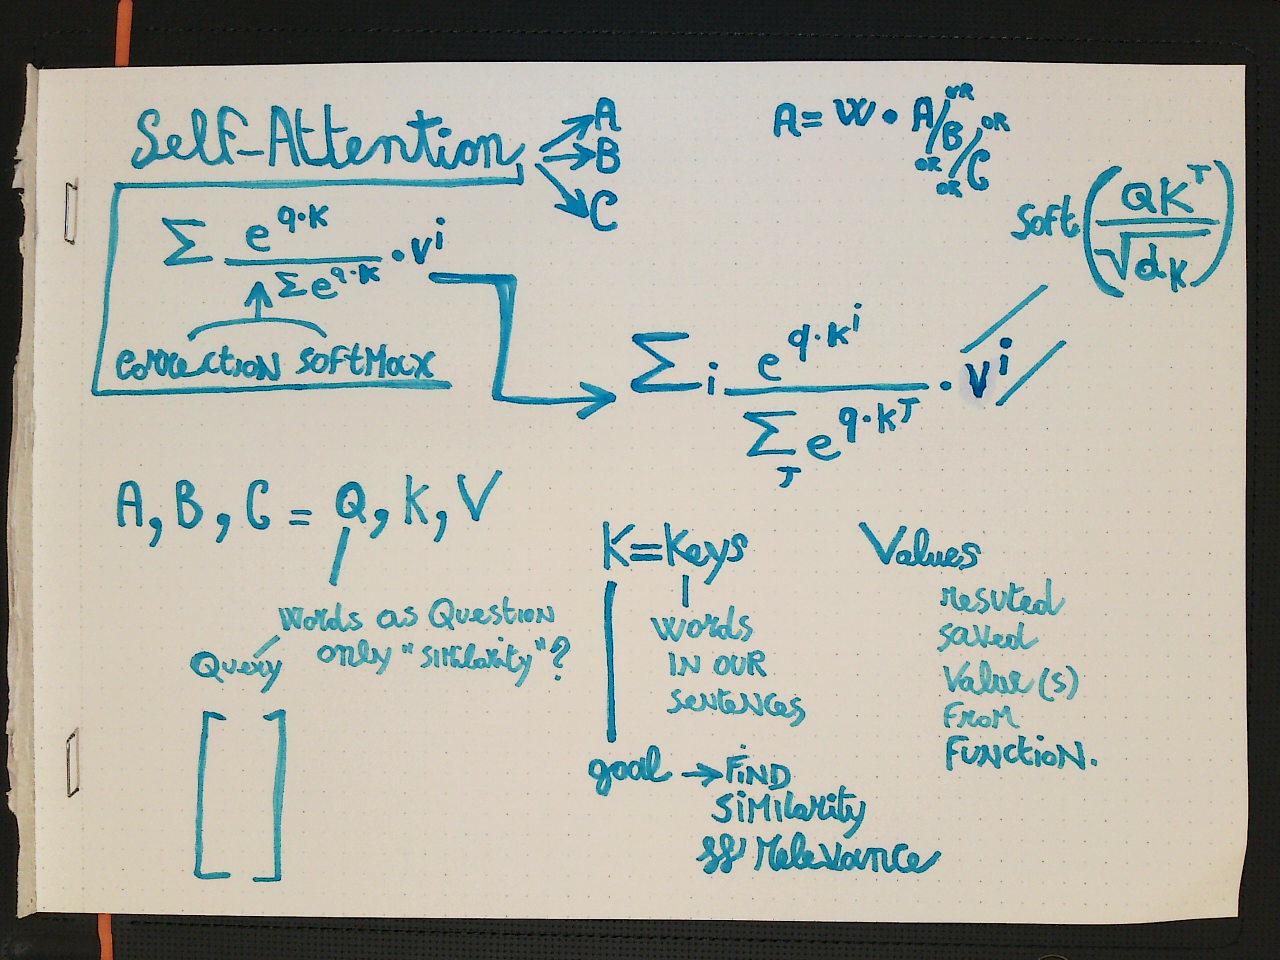 Self-Attention → A
→ B
→ C
A = W · A/B/C
OR
OR
OR
OR
Soft (QK^T / √dk)
Σ e^q·k / Σ e^q·k · v^i
correction softmax
Σ i e^q·k^i / Σ J e^q·k^J · v^i //
A, B, C = Q, K, V
words as Question
only "similarity"?
Query
[ ]
K = Keys
words
IN OUR
sentences
goal → FIND
similarity
relevance
Values
resuted
saved
Value(s)
From
FUNCTION.